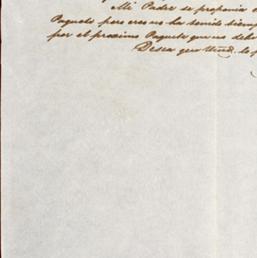 Mi Padre se proponia
Paquete pero creo no ha tenido tiemp
por el proximo Paquete que no debe
Desea que Umd. le